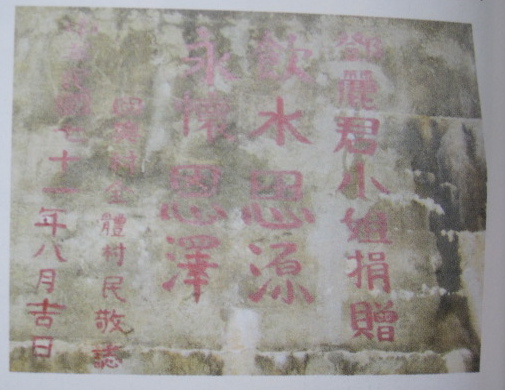 鄧麗君小姐捐贈
飲水思源
永懷恩澤
村全體村民敬誌
中華民國七十一年八月吉日